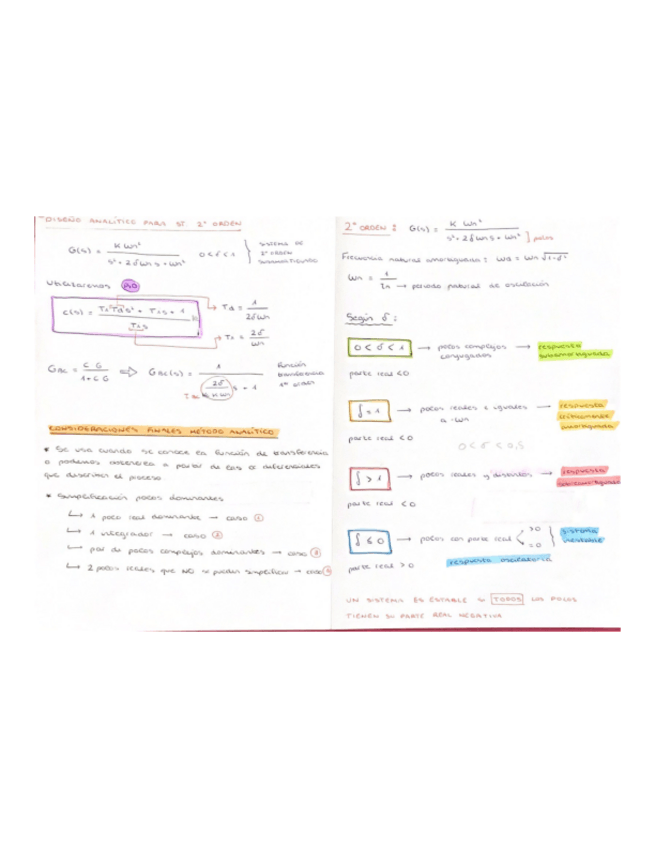 DISEÑO ANALÍTICO PARA ST. 2º ORDEN
G(s) = K Wn² / (s² + 2δWns + Wn²)   0 < δ < 1
SISTEMA DE
2º ORDEN
SUBAMORTIGUADO
Utilizaremos PID
C(s) = (TiTds² + Tis + 1) / Tis
Td = 1 / 2δWn
Ti = 2δ / Wn
GBC = C G / (1 + C G) ⇒ GBC(s) = 1 / (2δ / K Wn s + 1)
función
transferencia
1er orden
CONSIDERACIONES FINALES MÉTODO ANALÍTICO
* Se usa cuando se conoce la función de transferencia
o podemos obtenerla a partir de las ec diferenciales
que describen el proceso
* Simplificación polos dominantes
↳ 1 polo real dominante → caso 1
↳ 1 integrador → caso 2
↳ par de polos complejos dominantes → caso 3
↳ 2 polos reales que NO se pueden simplificar → caso
2º ORDEN : G(s) = K Wn² / (s² + 2δWns + Wn²) ] polos
Frecuencia natural amortiguada : Wd = Wn √1-δ²
Wn = 1 / → periodo natural de oscilación
Según δ :
0 < δ < 1 → polos complejos conjugados → respuesta subamortiguada
parte real < 0
δ = 1 → polos reales e iguales a -Wn → respuesta críticamente amortiguada
parte real < 0
0 < δ < 0,5
δ > 1 → polos reales y distintos → respuesta sobreamortiguada
parte real < 0
δ ≤ 0 → polos con parte real > 0 = 0 } sistema inestable
parte real > 0
respuesta oscilatoria
UN SISTEMA ES ESTABLE si TODOS LOS POLOS
TIENEN SU PARTE REAL NEGATIVA